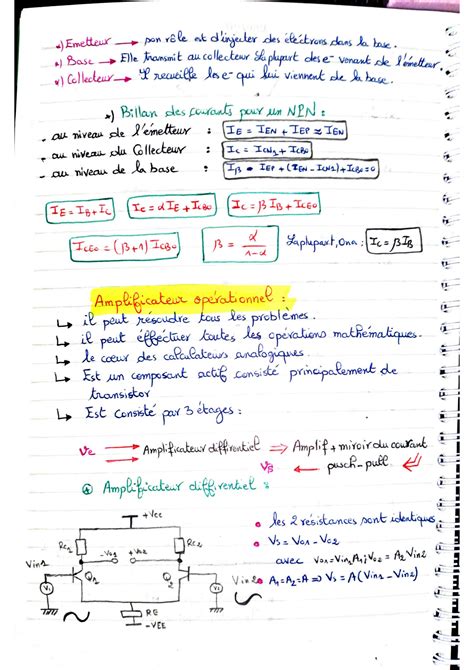 *) Emetteur → son rôle est d'injecter des éléctrons dans la base.
*) Base → Elle transmit au collecteur la plupart des e- venant de l'émetteur.
*) Collecteur → Il recueille les e- qui lui viennent de la base.
*) Billan des courants pour un NPN :
- au niveau de l'émetteur : IE = IEN + IEP ≈ IEN
- au niveau du Collecteur : IC = ICN1 + ICB0
- au niveau de la base : IB = IEP + (IEN - ICN1) + ICB0 = 0
IE = IB + IC IC = α IE + ICB0 IC = β IB + ICE0
ICE0 = (β+1) ICB0 β = α / 1-α La plupart, On a : IC = β IB
Amplificateur opérationnel :
↳ il peut résoudre tous les problèmes.
↳ il peut éffectuer toutes les opérations mathématiques.
↳ le cœur des calculateurs analogiques.
↳ Est un composant actif consisté principalement de
transistor
↳ Est consisté par 3 étages :
Ve → Amplificateur diffrentiel ⇒ Amplif + miroir du courant
Vs ← pusch-pull
① Amplificateur diffrentiel :
+Vcc
RC1 -Vo1 +Vo2 RC2
Vin1 Q1 Q2 Vin2
V1 V2
RE
-VEE
• les 2 résistances sont identiques
• Vs = Vo1 - Vo2
avec Vo1 = Vin1 A1 ; Vo2 = A2 Vin2
• A1 = A2 = A ⇒ Vs = A (Vin1 - Vin2)